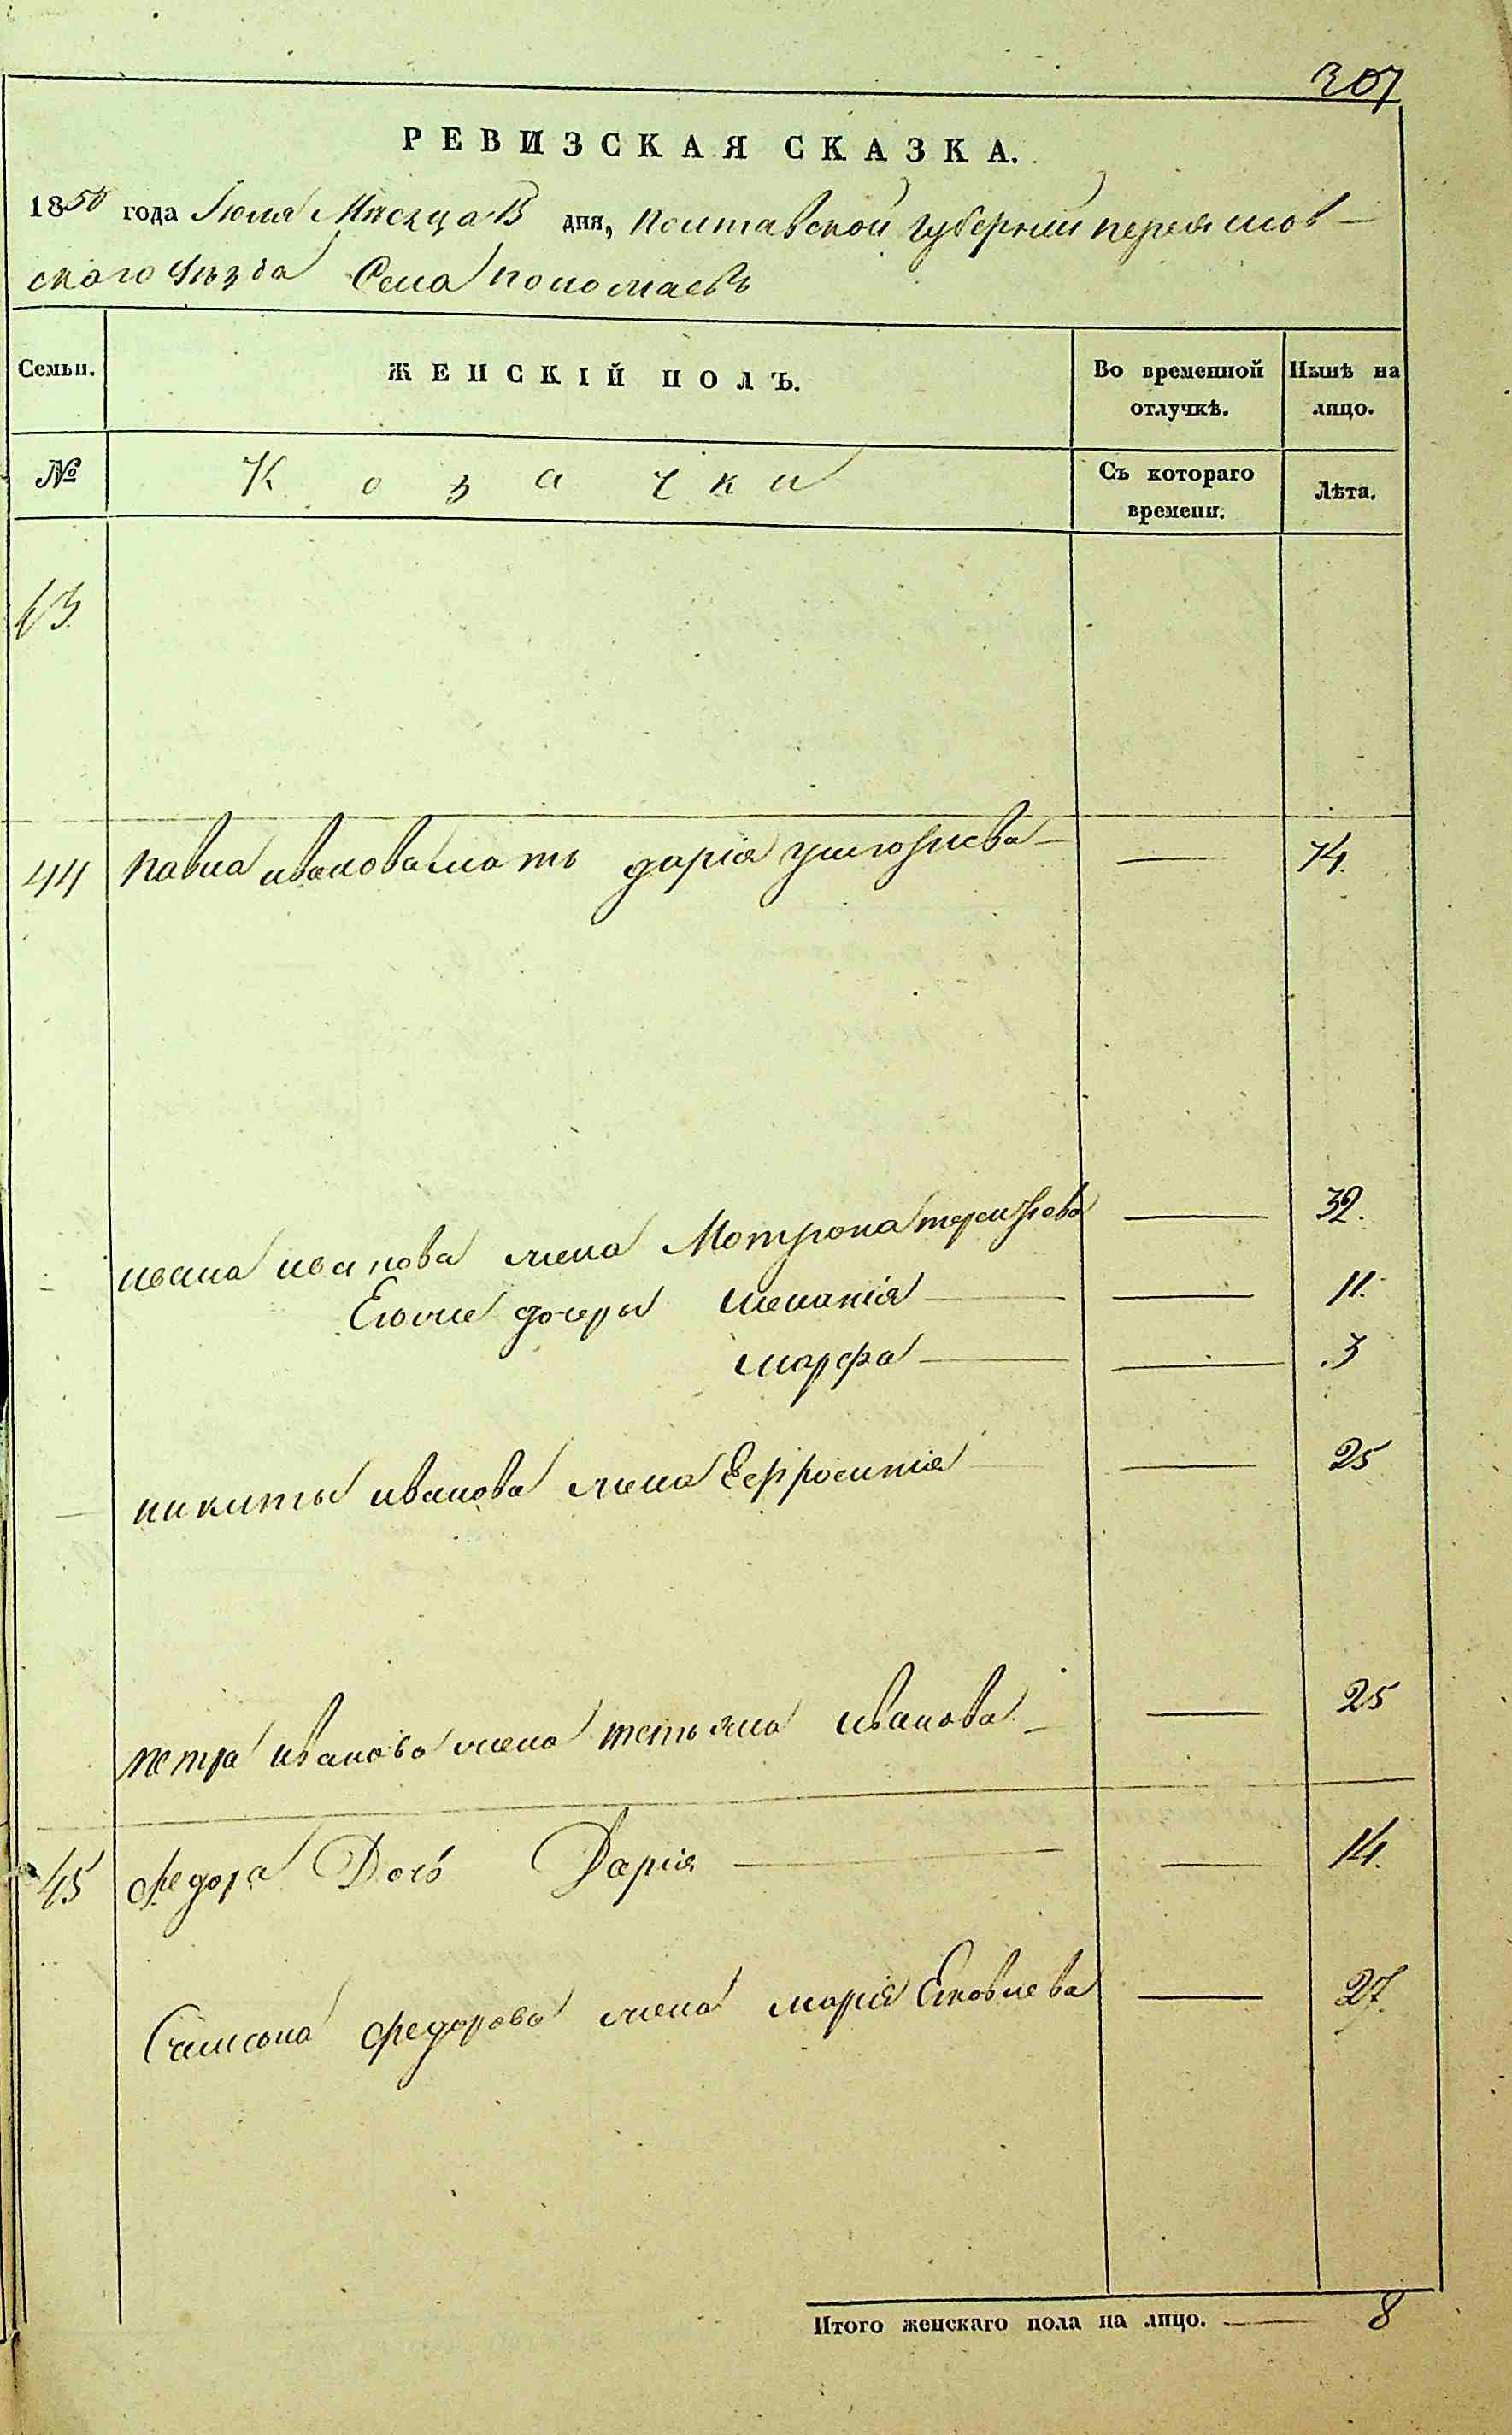 307
РЕВИЗСКАЯ СКАЗКА.
1850 года Июля Мѣсяца дня, полтавской губерніи переяслов-
ского уѣзда Села
Семьи. ЖЕНСКІЙ ПОЛЪ. Во временной отлучкѣ. Нынѣ на лицо.
№ Козачки Съ котораго времени. Лѣта.
43
44 павла иванова мать дарія — — 74.
ивана иванова жена Мотрона — 32.
Еговые дочеры меланія — — 11.
марфа — — 3
никиты иванова жена Ефросинія — 25
петра иванова жена тетьяна иванова — — 25
45 федора Дочь Дарія — — 14.
Самсона федорова жена марія Яковлева — 27.
Итого женскаго пола на лицо. — 8